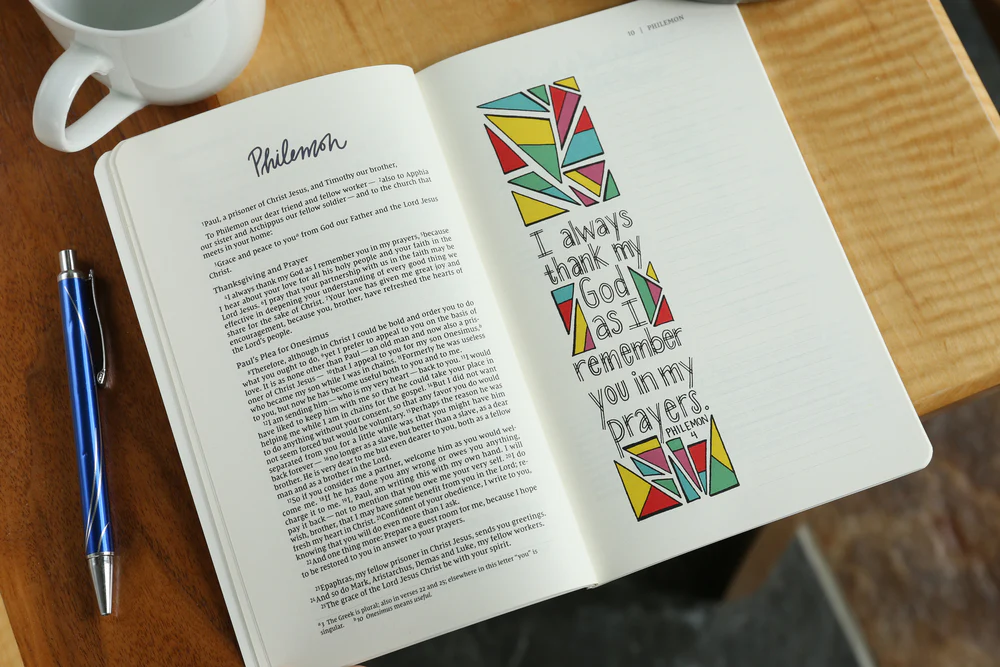 Philemon
¹Paul, a prisoner of Christ Jesus, and Timothy our brother,
To Philemon our dear friend and fellow worker— ²also to Apphia
our sister and Archippus our fellow soldier—and to the church that
meets in your home:
³Grace and peace to youᵃ from God our Father and the Lord Jesus
Christ.
Thanksgiving and Prayer
⁴I always thank my God as I remember you in my prayers, ⁵because
I hear about your love for all his holy people and your faith in the
Lord Jesus. ⁶I pray that your partnership with us in the faith may be
effective in deepening your understanding of every good thing we
share for the sake of Christ. ⁷Your love has given me great joy and
encouragement, because you, brother, have refreshed the hearts of
the Lord's people.
Paul's Plea for Onesimus
⁸Therefore, although in Christ I could be bold and order you to do
what you ought to do, ⁹yet I prefer to appeal to you on the basis of
love. It is as none other than Paul—an old man and now also a pris-
oner of Christ Jesus— ¹⁰that I appeal to you for my son Onesimus,ᵇ
who became my son while I was in chains. ¹¹Formerly he was useless
to you, but now he has become useful both to you and to me.
¹²I am sending him—who is my very heart—back to you. ¹³I would
have liked to keep him with me so that he could take your place in
helping me while I am in chains for the gospel. ¹⁴But I did not want
to do anything without your consent, so that any favor you do would
not seem forced but would be voluntary. ¹⁵Perhaps the reason he was
separated from you for a little while was that you might have him
back forever— ¹⁶no longer as a slave, but better than a slave, as a dear
brother. He is very dear to me but even dearer to you, both as a fellow
man and as a brother in the Lord.
¹⁷So if you consider me a partner, welcome him as you would wel-
come me. ¹⁸If he has done you any wrong or owes you anything,
charge it to me. ¹⁹I, Paul, am writing this with my own hand. I will
pay it back—not to mention that you owe me your very self. ²⁰I do
wish, brother, that I may have some benefit from you in the Lord; re-
fresh my heart in Christ. ²¹Confident of your obedience, I write to you,
knowing that you will do even more than I ask.
²²And one thing more: Prepare a guest room for me, because I hope
to be restored to you in answer to your prayers.
²³Epaphras, my fellow prisoner in Christ Jesus, sends you greetings.
²⁴And so do Mark, Aristarchus, Demas and Luke, my fellow workers.
²⁵The grace of the Lord Jesus Christ be with your spirit.
ᵃ3 The Greek is plural; also in verses 22 and 25; elsewhere in this letter "you" is
singular. ᵇ10 Onesimus means useful.
10 | PHILEMON
I always
thank my
God
as I
remember
you in my
prayers.
PHILEMON
4